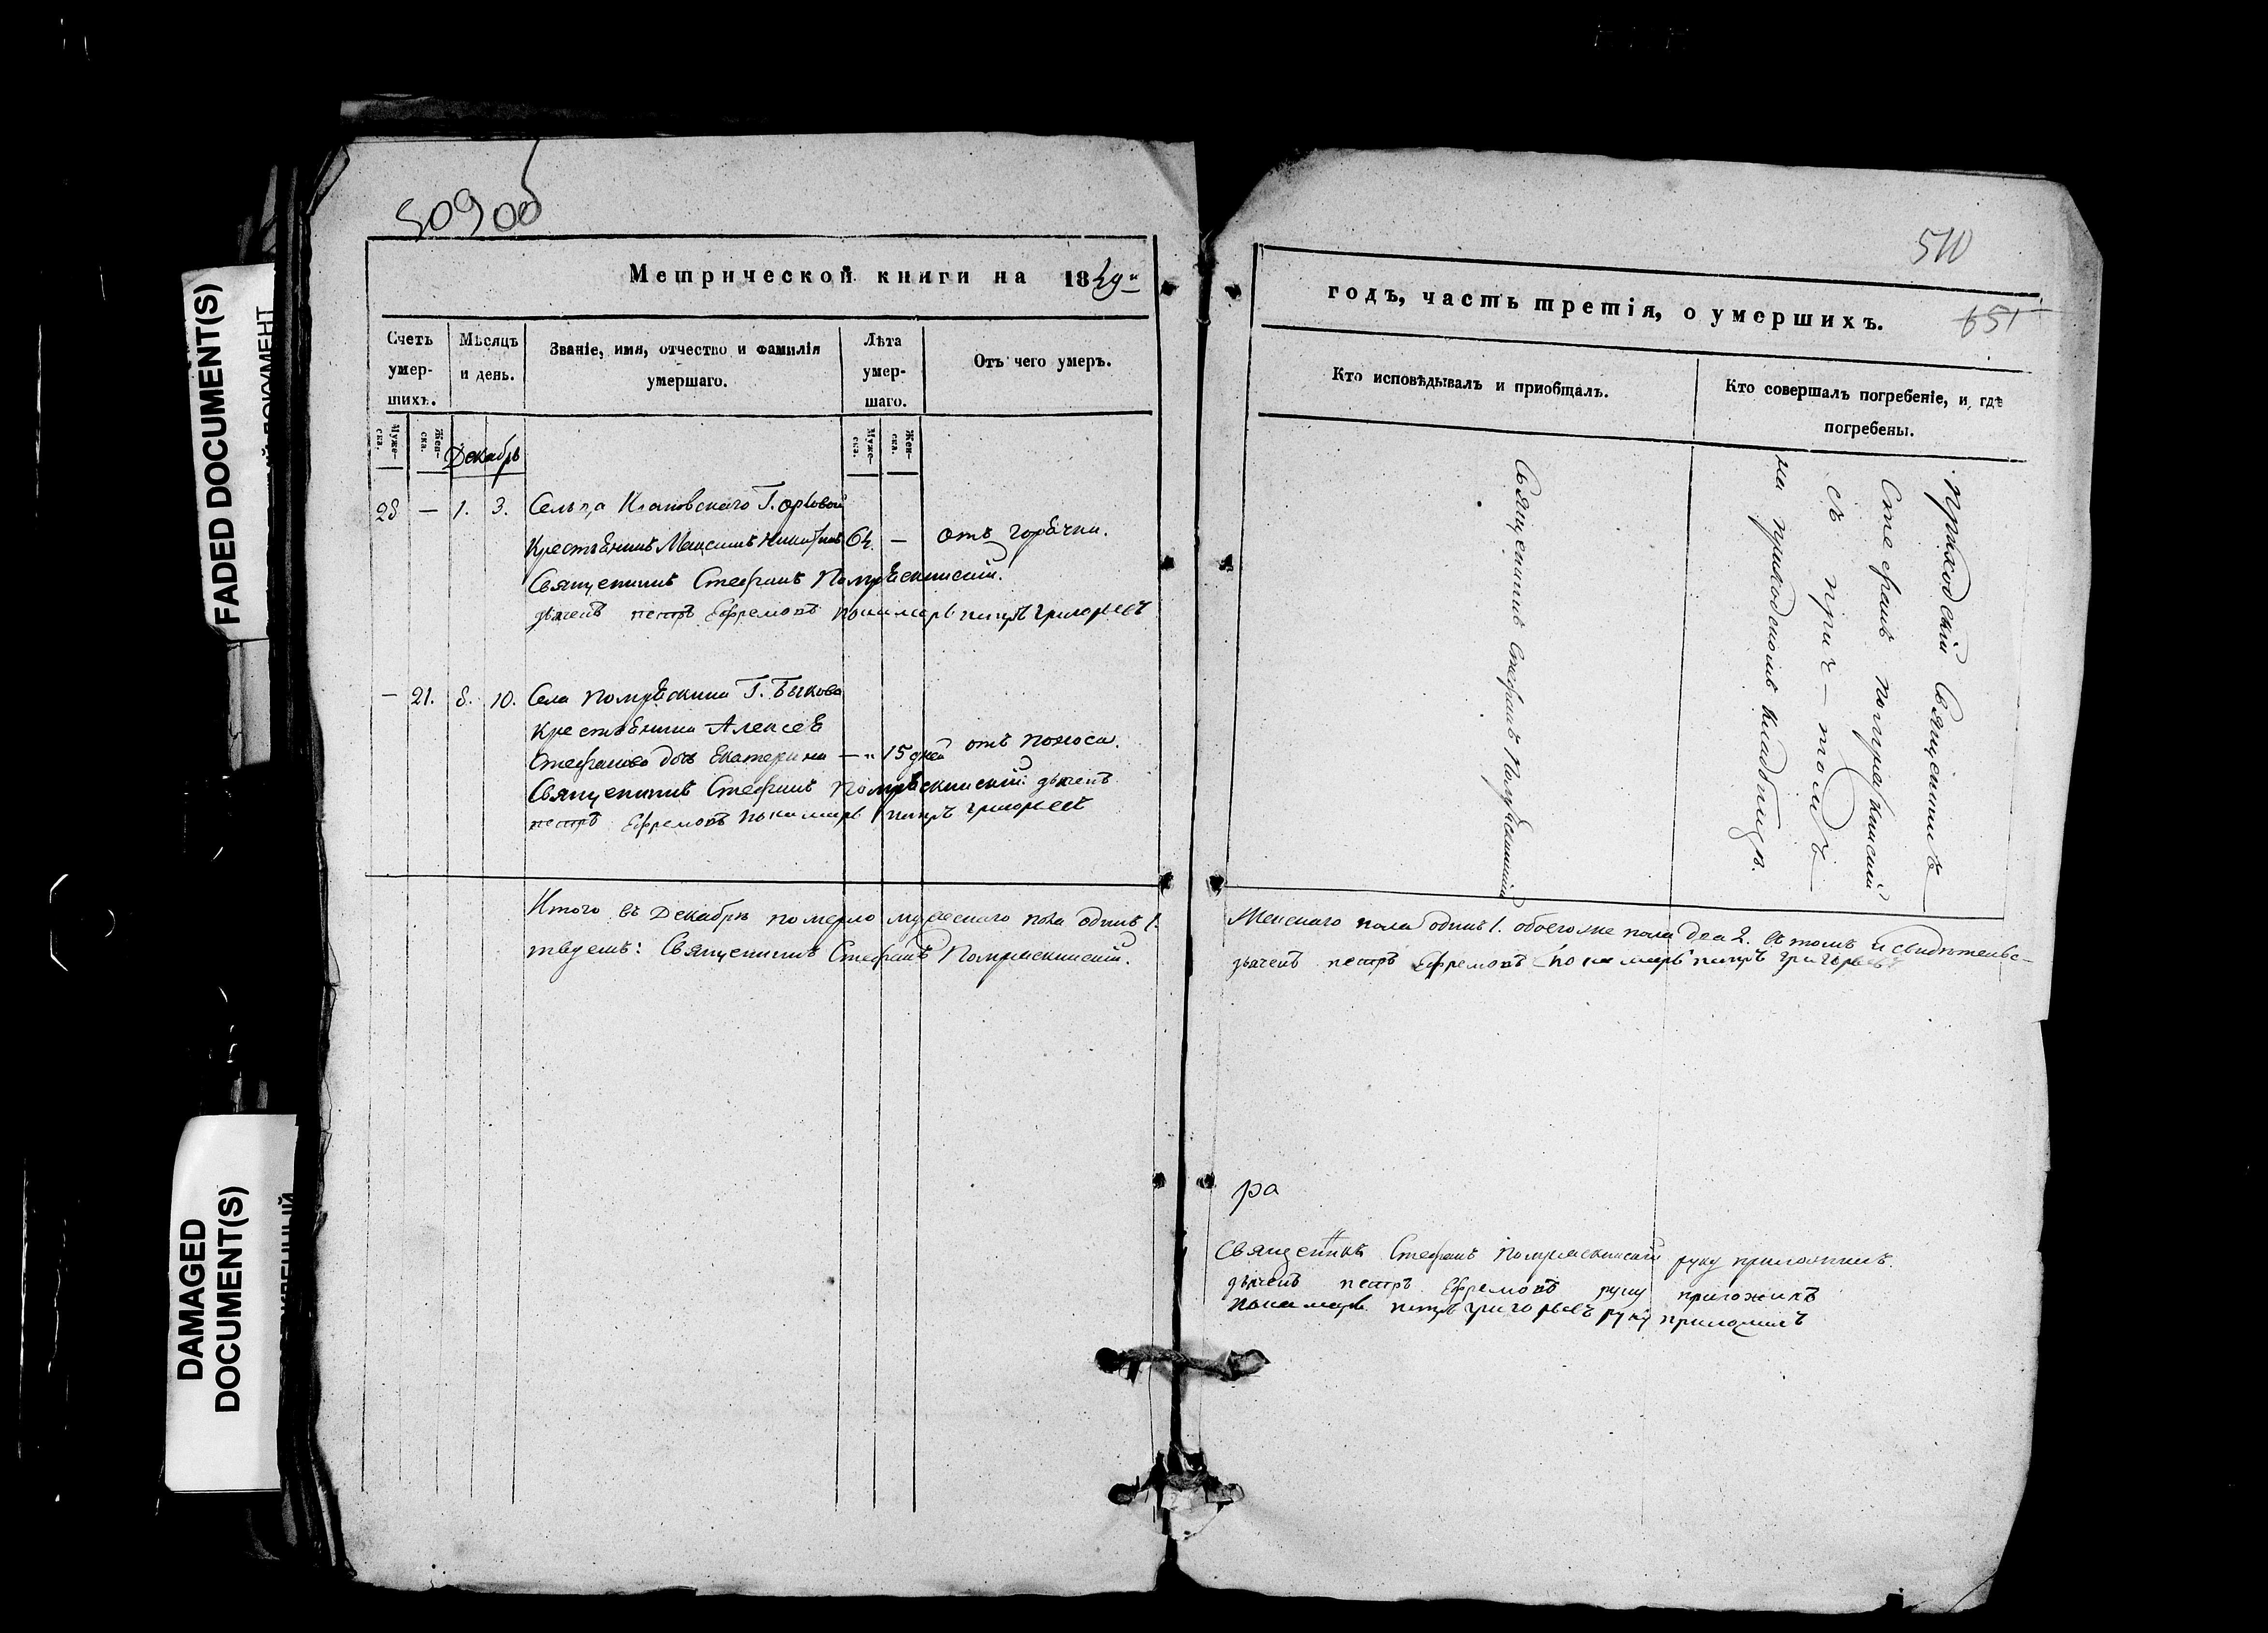 FADED DOCUMENT(S)
DAMAGED
DOCUMENT(S)
509об
Метрической книги на 1849й
Счетъ умер-шихъ.
Мѣсяцъ и день.
Званіе, имя, отчество и фамилія умершаго.
Лѣта умер-шаго.
Отъ чего умеръ.
Муже-ска.
Жен-ска.
Декабрь
Муже-ска.
Жен-ска.
28 — 1. 3. Сельца Г. Орловой
Крестьянинъ Максимъ 64. — отъ горячки.
Священникъ Стефанъ
дьячекъ петръ Ефремовъ понамарь петръ григорьевъ
— 21. 8. 10. Села Г. Быкова
Крестьянина Алексея
Стефанова дочь Екатерина — " 15 дней отъ поноса.
Священникъ Стефанъ дьячекъ
петръ Ефремовъ понамарь петръ григорьевъ
Итого въ Декабрѣ померло мужескаго пола одинъ 1.
твуемъ: Священникъ Стефанъ
510
651
годъ, часть третія, о умершихъ.
Кто исповѣдывалъ и приобщалъ.
Кто совершалъ погребеніе, и гдѣ погребены.
Священникъ Стефанъ
Приходскій Священникъ
Стефанъ
съ причтомъ
на приходскомъ кладбищѣ.
Женскаго пола одинъ 1. обоего же пола два 2. въ томъ и свидѣтельс-
дьячекъ петръ Ефремовъ понамарь петръ григорьевъ
ра
Священникъ Стефанъ руку приложилъ.
дьячекъ петръ Ефремовъ руку приложилъ
понамарь петръ григорьевъ руку приложилъ